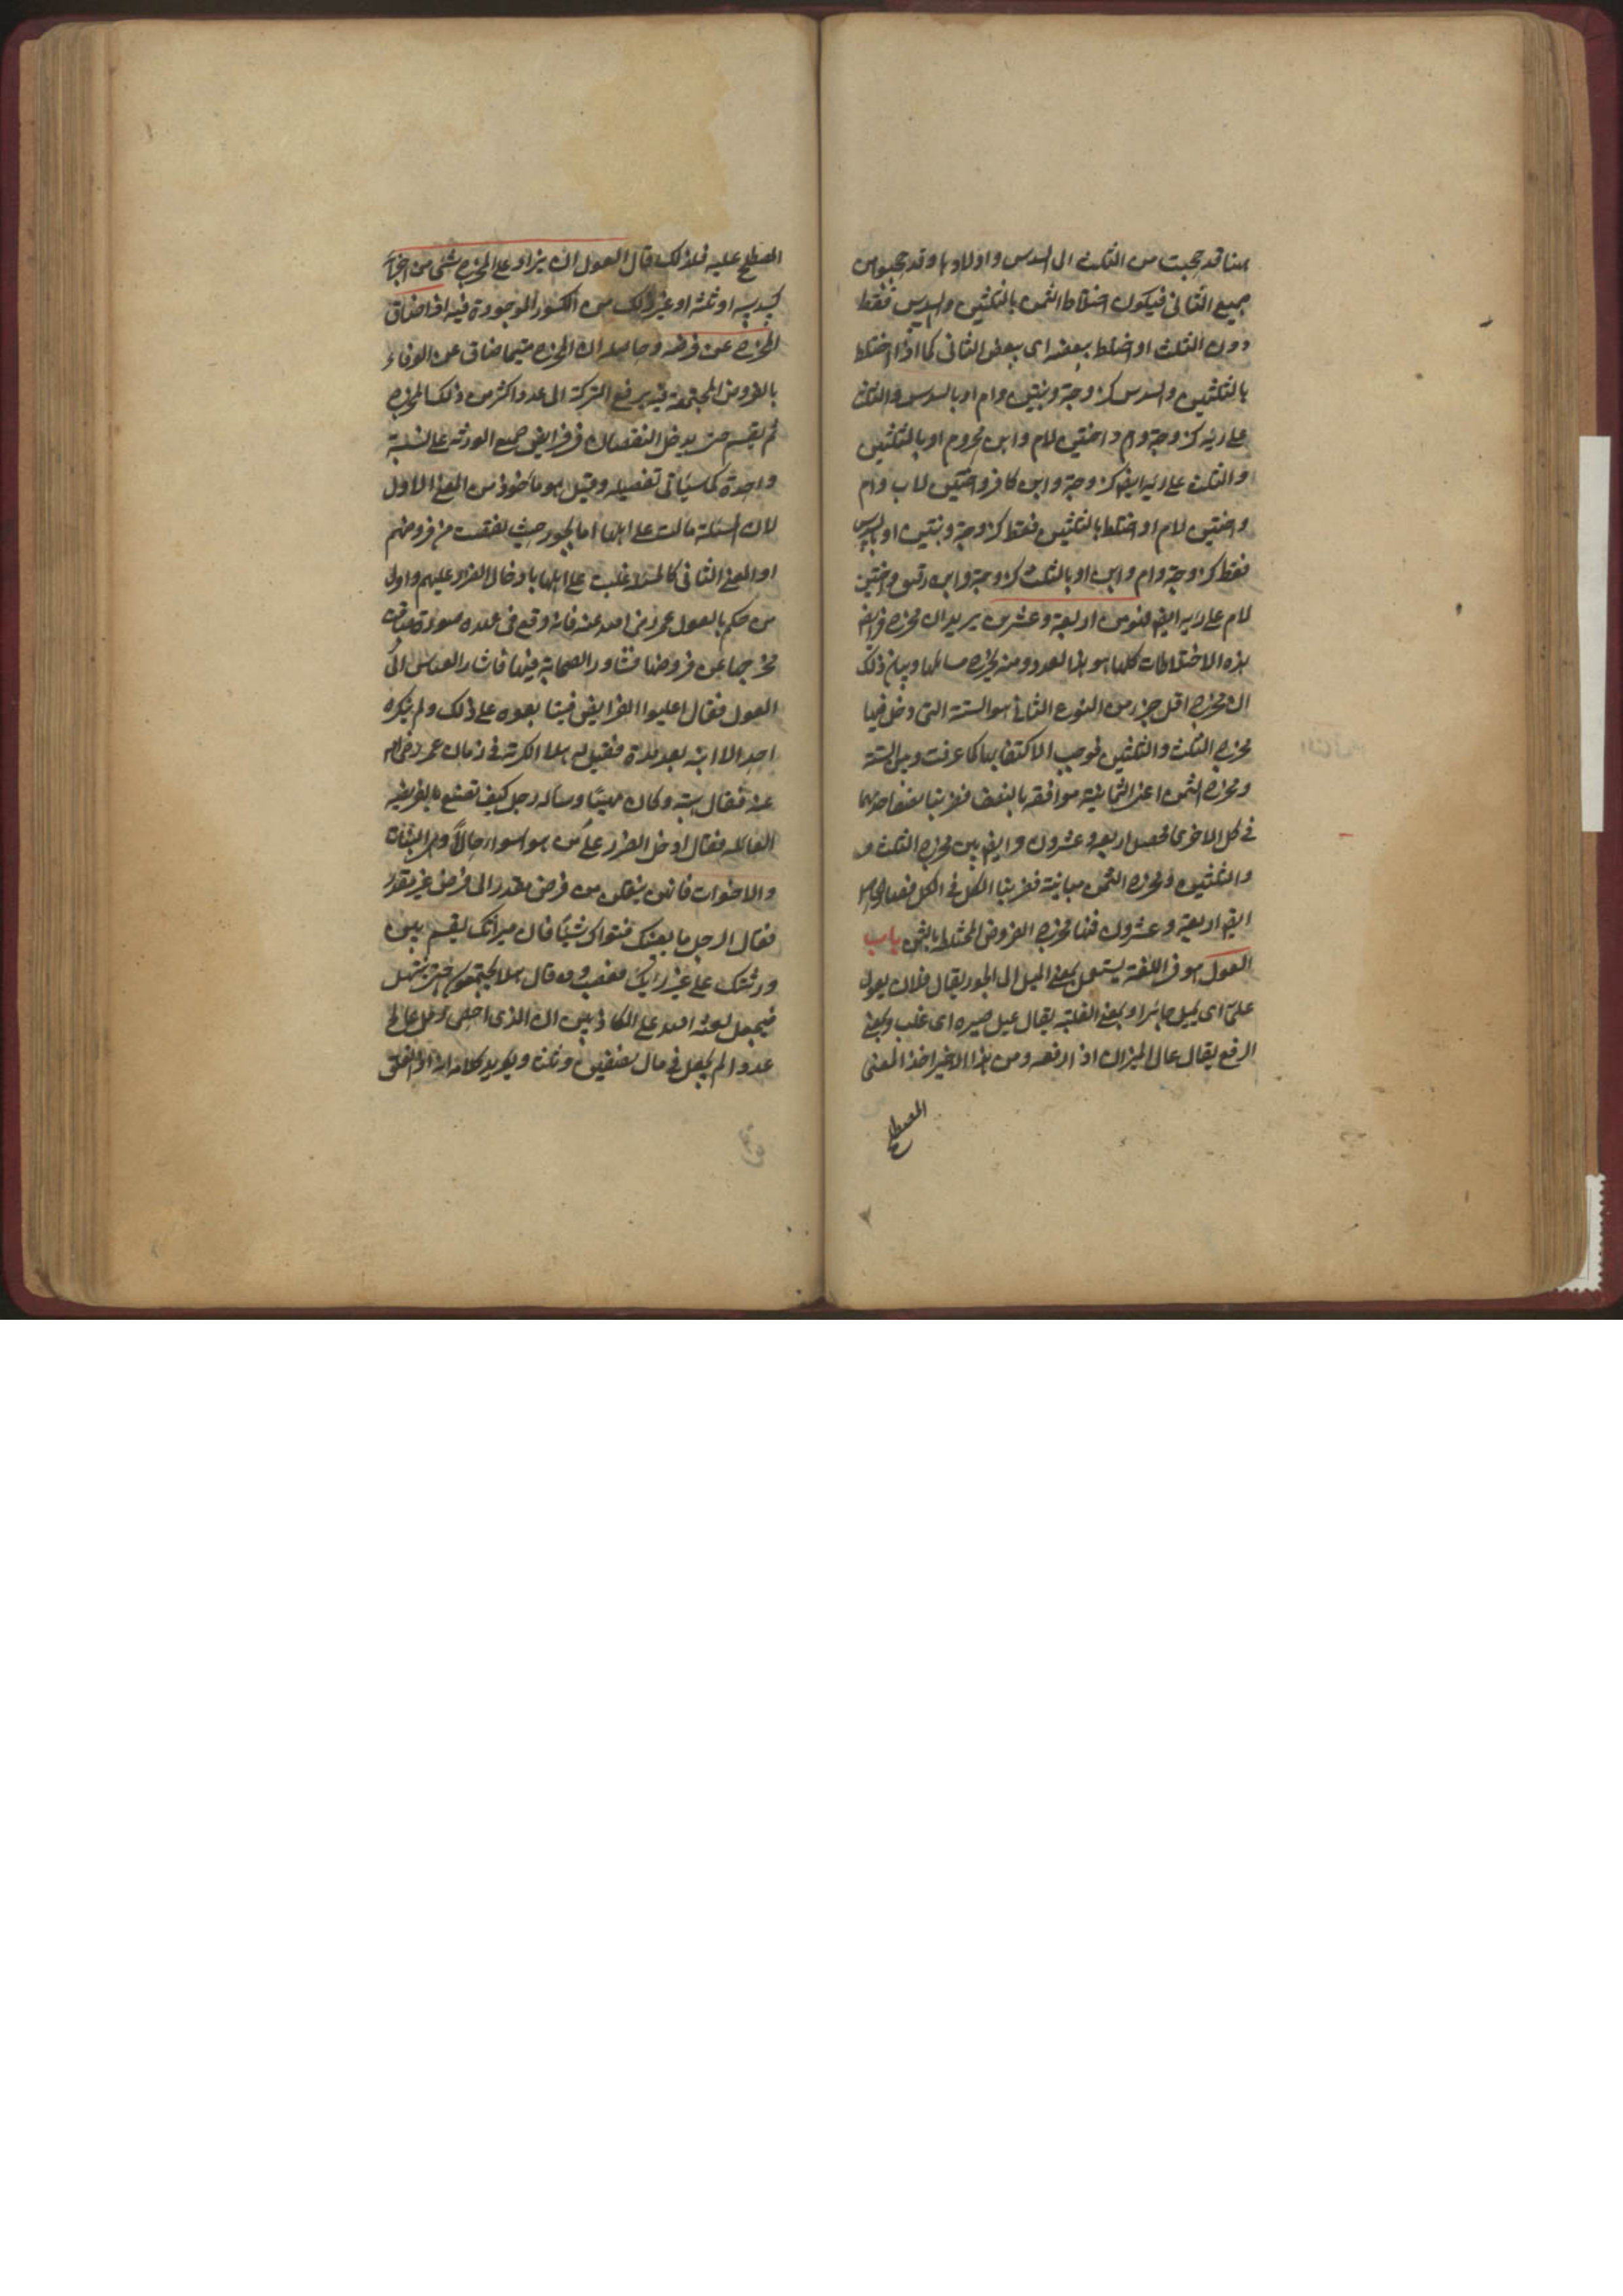 ههنا قد حجبت من الثلث الى السدس واولادها وقد حجبوا من
جميع الثانى فيكون اختلاط الثمن بالثلثين والسدس فقط
دون الثلث او اختلط ببعضه اى ببعض الثانى كما اذا اختلط
بالثلثين والسدس كزوجة وبنتين وام او بالسدس والثلث
على رايه كزوجة وام واختين لام وابن محروم او بالثلثين
والثلث على رايه ايضا كزوجة وابن كافر واختين لاب وام
واختين لام او اختلط بالثلثين فقط كزوجة وبنتين او بالسدس
فقط كزوجة وام وابن او بالثلث كزوجة وابن رقيق واختين
لام على رايه ايضا فهو من اربعة وعشرين يريد ان مخرج فرائض
هذه الاختلاطات كلها هو هذا العدد ومنه يخرج مسائلها وبيان ذلك
ان مخرج اقل جزء من النوع الثانى هو الستة التى دخل فيها
مخرج الثلث والثلثين فوجب الاكتفاء بها كما عرفت وبين الستة
ومخرج الثمن اعنى الثمانية موافقة بالنصف فضربنا نصف احدهما
فى كل الاخرى فحصل اربعة وعشرون وايضا بين مخرج الثلث و
والثلثين ومخرج الثمن مباينة فضربنا الكل فى الكل فصار الحاصل
ايضا اربعة وعشرون فهنا مخرج الفروض المختلط بالثمن باب
العول هو فى اللغة يستعمل بمعنى الميل الى الجور يقال فلان يعول
على اى يميل جائرا وبمعنى الغلبة يقال عيل صبره اى غلب وبمعنى
الرفع يقال عال الميزان اذا رفعه ومن هذا الاخير اخذ المعنى
المصطلح
المصطلح عليه فلذلك قال العول ان يزاد على المخرج شئ من اجزائه
كسدسه او ثلثه او غير ذلك من الكسور الموجودة فيه اذا ضاق
المخرج عن فرض وحاصله ان المخرج متى ما ضاق عن الوفاء
بالفروض المجتمعة فيه يرفع التركة الى عدد اكثر من ذلك المخرج
ثم يقسم حتى يدخل النقصان فى فرائض جميع الورثة على نسبة
واحدة كما سيأتى تفصيله وقيل هو مأخوذ من المعنى الاول
لان المسئلة مالت على اهلها بالجور حيث نقصت من فروضهم
او المعنى الثانى كالمسئلة غلبت على اهلها بادخال الضرر عليهم واول
من حكم بالعول عمر رضى الله عنه فانه وقع فى عهده صورة ضاق
مخرجها عن فروضها فشاور الصحابة فيها فاشار العباس الى
العول فقال اعيلوا الفرائض فتابعوه على ذلك ولم ينكره
احد الا ابنه بعد مدة فقيل له هلا انكرته فى زمان عمر رضى الله
عنه فقال هبته وكان مهيبا وسأله رجل كيف تصنع بالفريضة
العائلة فقال ادخل الضرر على من هو اسوء حالا وهن البنات
والاخوات فانهن ينقلن من فرض مقدر الى فرض غير مقدر
فقال الرجل ما يغنيك فتواك شيئا فان ميراثك يقسم بين
ورثتك على غير رأيك فغضب وقال هلا يجتمعون حتى نبتهل
فنجعل لعنة الله على الكاذبين ان الذى احصى رمل عالج
عددا لم يجعل فى مال نصفين وثلثا ويؤيد كلامه انه اذا تعلق